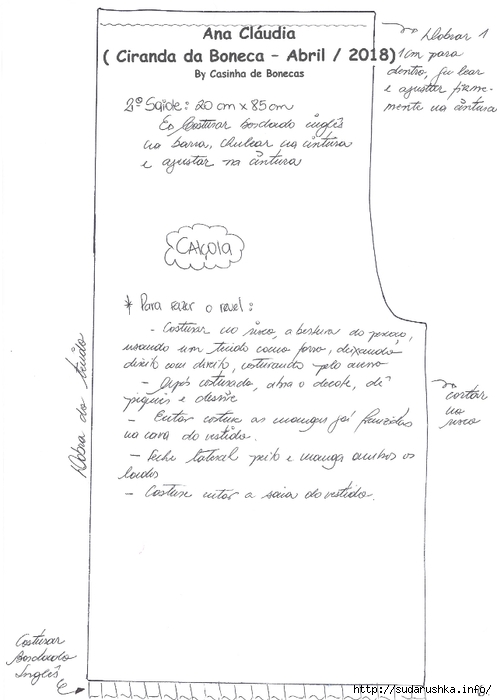 Ana Cláudia
( Ciranda da Boneca - Abril / 2018)
By Casinha de Bonecas
Dobrar 1
1cm para
dentro,
e ajustar firme-
mente na cintura
2ª Saiote: 20 cm x 85 cm
Costurar bordado inglês
na barra, chulear na cintura
e ajustar na cintura
CAlçola
* Para fazer o revel:
- Costurar no risco, a abertura do pescoço,
usando um tecido como forro, deixando
direito com direito, costurando pelo avesso
- Após costurado, abra o decote, dê
piques e desvire
- Então costure as mangas já franzidas
na cava do vestido.
- Feche lateral peito e manga ambos os
lados
- Costure então a saia do vestido.
Dobra do tecido
cortar
no
risco
Costurar
Bordado
Inglês
http://sudarushka.info/